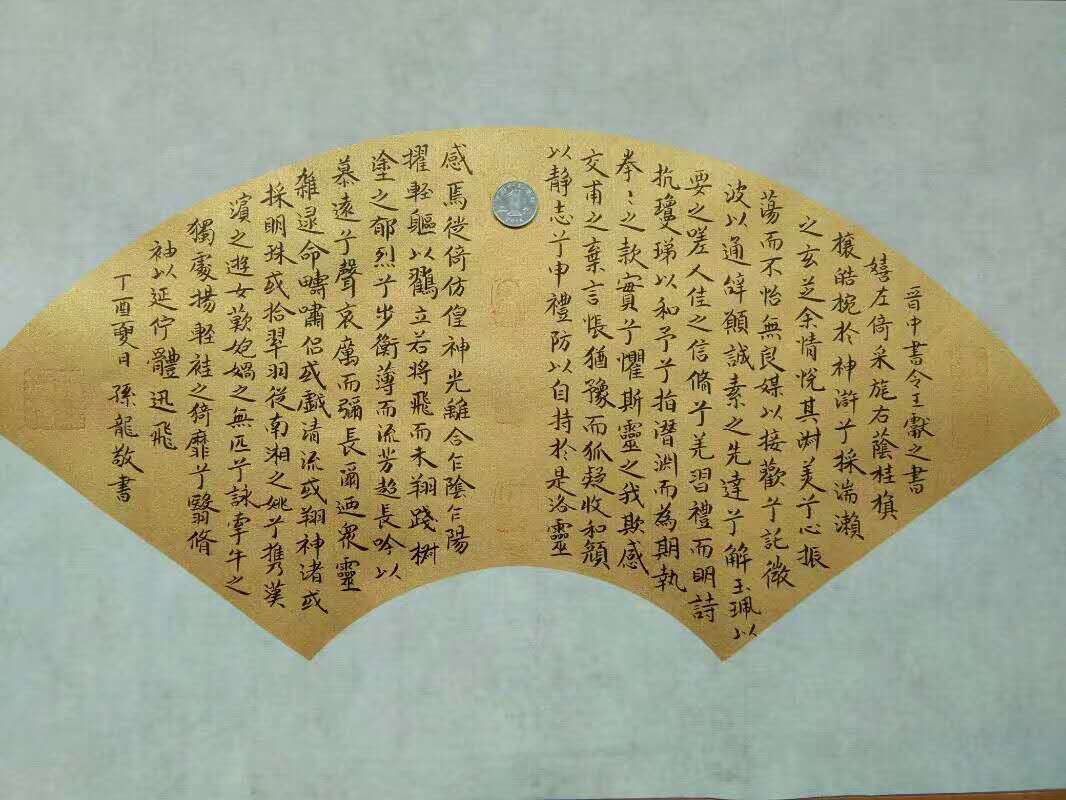 晉中書令王獻之書
嬉左倚采旄右蔭桂旗
攘皓捥於神滸兮採湍瀨
之玄芝余情恱其淑美兮心振
蕩而不怡無良媒以接歡兮託微
波以通辭願誠素之先達兮解玉珮以
要之嗟佳人之信脩兮羌習禮而明詩
抗瓊珶以和予兮指潛淵而為期執
拳〻之款實兮懼斯靈之我欺感
交甫之棄言悵猶豫而狐疑收和顏
以静志兮申禮防以自持於是洛靈
感焉徙倚仿偟神光離合乍陰乍陽
擢輕軀以鶴立若將飛而未翔踐椒
塗之郁烈兮步衡薄而流芳超長吟以
慕遠兮聲哀厲而彌長爾迺衆靈
雜遝命疇嘯侶或戲清流或翔神渚或
採明珠或拾翠羽從南湘之姚兮攜漢
濱之遊女歎匏媧之無匹兮詠牽牛之
獨處揚輕袿之猗靡兮翳脩
袖以延佇體迅飛
丁酉夏日 孫龍敬書